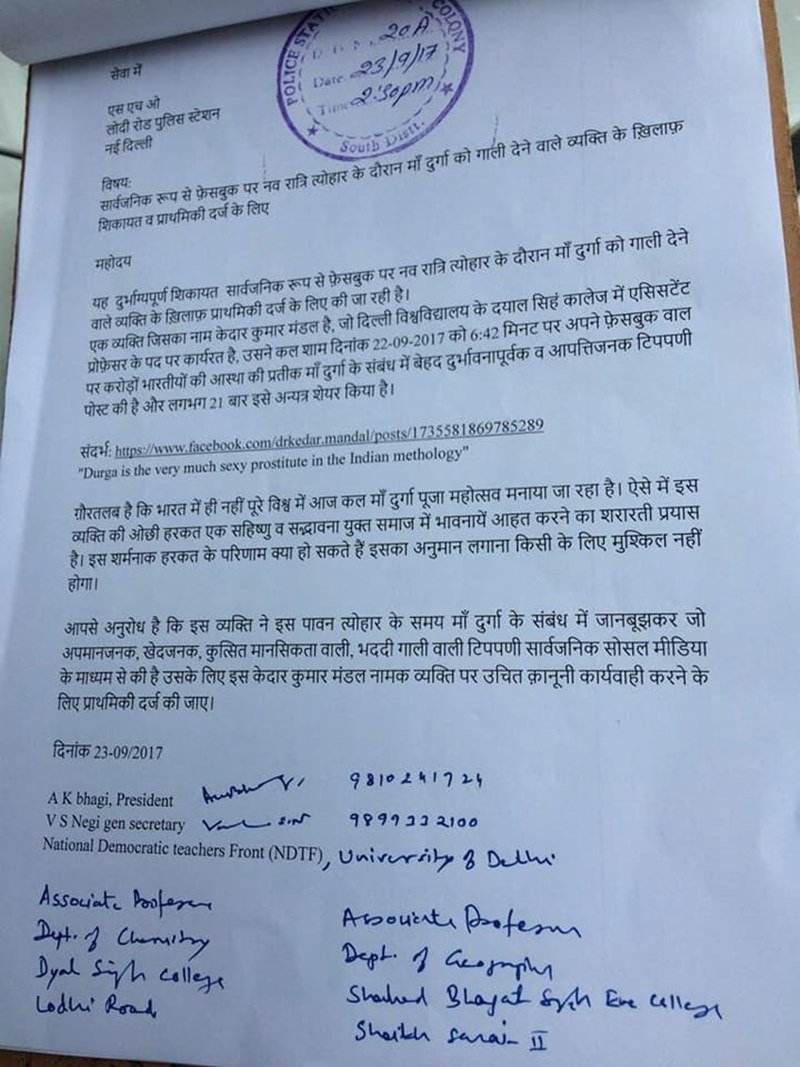 POLICE STATION COLONY
D.D. No. 20A
Date 23/9/17
Time 2:30pm
South Distt.
सेवा में
एस एच ओ
लोदी रोड पुलिस स्टेशन
नई दिल्ली
विषय:
सार्वजनिक रूप से फ़ेसबुक पर नव रात्रि त्योहार के दौरान माँ दुर्गा को गाली देने वाले व्यक्ति के ख़िलाफ़
शिकायत व प्राथमिकी दर्ज के लिए
महोदय
यह दुर्भाग्यपूर्ण शिकायत सार्वजनिक रूप से फ़ेसबुक पर नव रात्रि त्योहार के दौरान माँ दुर्गा को गाली देने
वाले व्यक्ति के ख़िलाफ़ प्राथमिकी दर्ज के लिए की जा रही है।
एक व्यक्ति जिसका नाम केदार कुमार मंडल है, जो दिल्ली विश्वविद्यालय के दयाल सिहं कालेज में एसिसटेंट
प्रोफ़ेसर के पद पर कार्यरत है, उसने कल शाम दिनांक 22-09-2017 को 6:42 मिनट पर अपने फ़ेसबुक वाल
पर करोड़ों भारतीयों की आस्था की प्रतीक माँ दुर्गा के संबंध में बेहद दुर्भावनापूर्वक व आपत्तिजनक टिपपणी
पोस्ट की है और लगभग 21 बार इसे अन्यत्र शेयर किया है।
संदर्भ: https://www.facebook.com/drkedar.mandal/posts/1735581869785289
"Durga is the very much sexy prostitute in the Indian methology"
ग़ौरतलब है कि भारत में ही नहीं पूरे विश्व में आज कल माँ दुर्गा पूजा महोत्सव मनाया जा रहा है। ऐसे में इस
व्यक्ति की ओछी हरकत एक सहिष्णु व सद्भावना युक्त समाज में भावनायें आहत करने का शरारती प्रयास
है। इस शर्मनाक हरकत के परिणाम क्या हो सकते हैं इसका अनुमान लगाना किसी के लिए मुश्किल नहीं
होगा।
आपसे अनुरोध है कि इस व्यक्ति ने इस पावन त्योहार के समय माँ दुर्गा के संबंध में जानबूझकर जो
अपमानजनक, खेदजनक, कुत्सित मानसिकता वाली, भददी गाली वाली टिपपणी सार्वजनिक सोसल मीडिया
के माध्यम से की है उसके लिए इस केदार कुमार मंडल नामक व्यक्ति पर उचित क़ानूनी कार्यवाही करने के
लिए प्राथमिकी दर्ज की जाए।
दिनांक 23-09/2017
A K bhagi, President 9810241724
V S Negi gen secretary 9899332100
National Democratic teachers Front (NDTF), University of Delhi
Associate Professor
Dept. of Chemistry
Dyal Singh College
Lodhi Road
Associate Professor
Dept. of Geography
Shaheed Bhagat Singh Eve College
Sheikh Sarai II